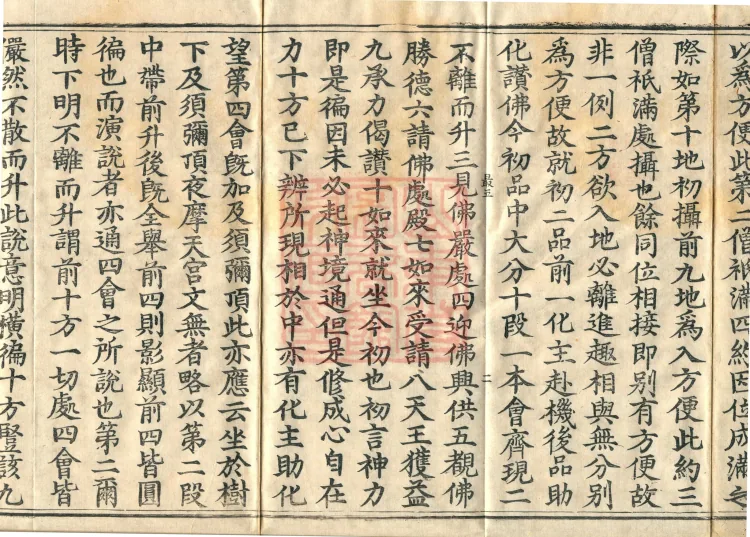 以爲方便此第二僧祇滿四約因位成滿之
際如第十地初攝前九地爲入方便此約三
僧祇滿處攝也餘同位相接即别有方便故
非一例二方欲入地必離進趣相與無分别
爲方便故就初二品前一化主赴機後品助
化讃佛今初品中大分十段一本會齊現二
最五
二
不離而升三見佛嚴處四迎佛興供五觀佛
勝德六請佛處殿七如來受請八天王獲益
九承力偈讃十如來就坐今初也初言神力
即是徧因未必起神境通但是修成心自在
力十方已下辨所現相於中亦有化主助化
望第四會旣加及須彌頂此亦應云坐於樹
下及須彌頂夜摩天宮文無者略以第二段
中帶前升後旣全舉前四則影顯前四皆圓
徧也而演說者亦通四會之所說也第二爾
時下明不離而升謂前十方一切處四會皆
儼然不散而升此說意明橫徧十方豎該九